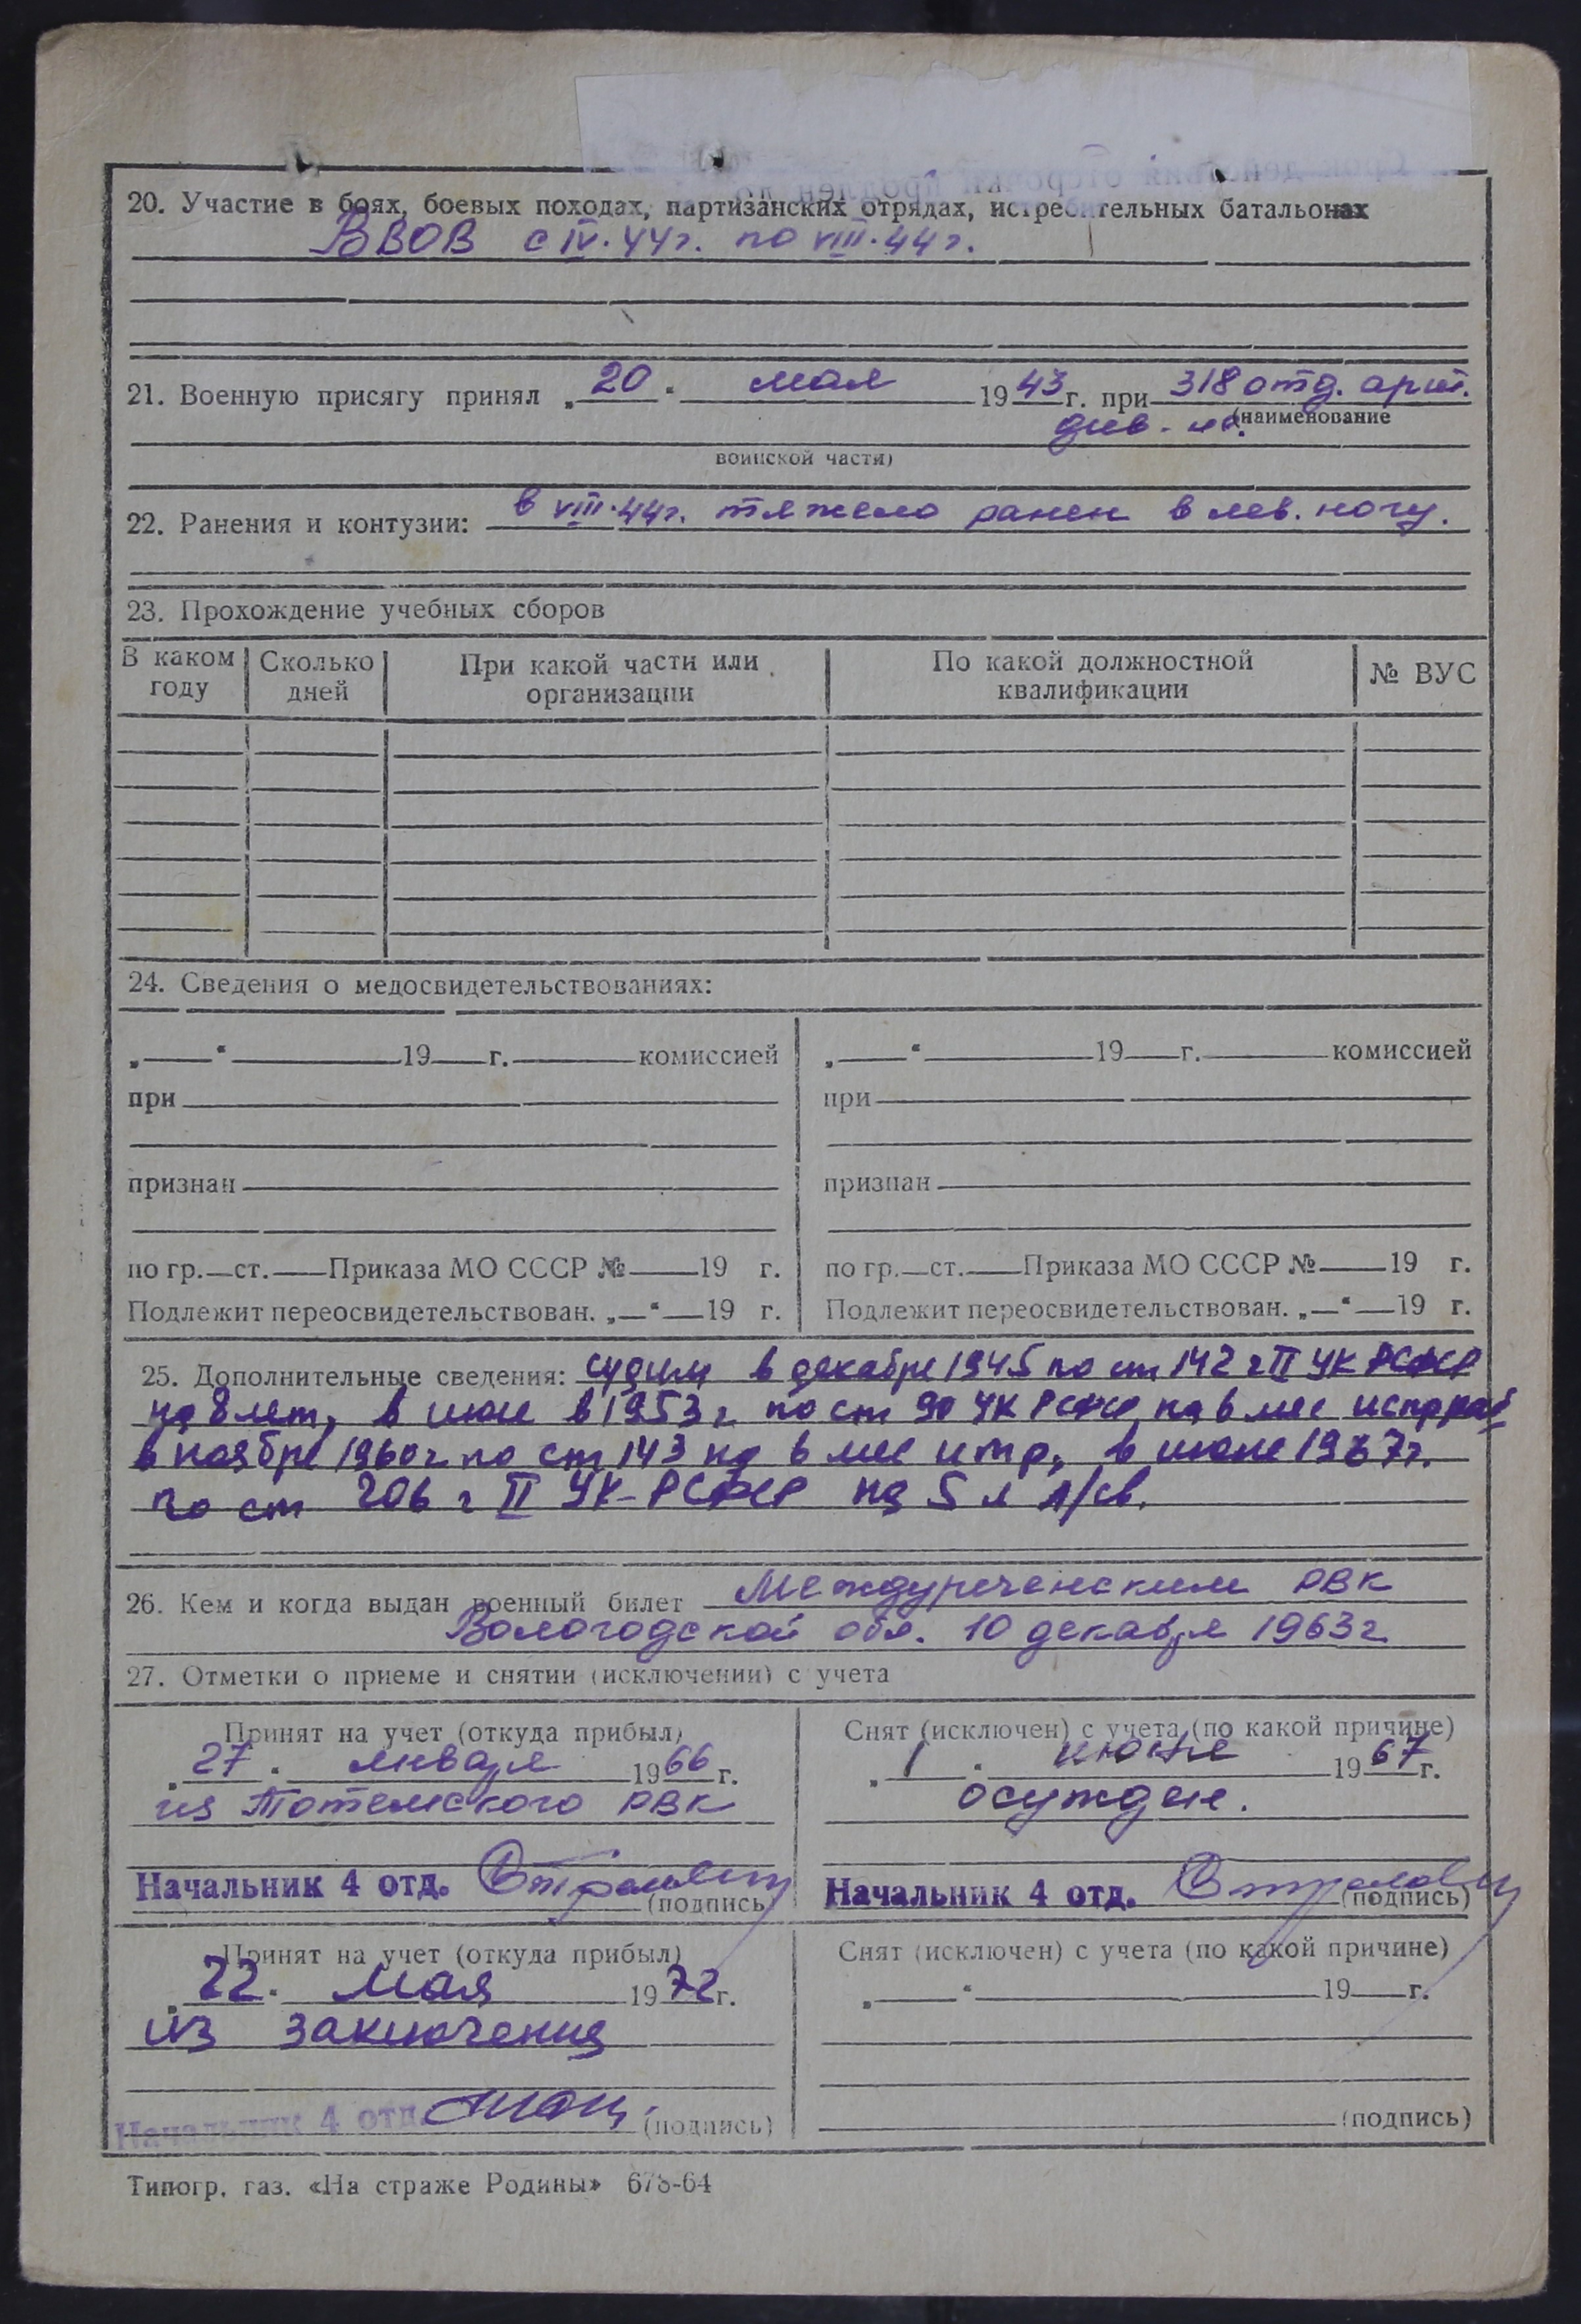 20. Участие в боях, боевых походах, партизанских отрядах, истребительных батальонах
ВВОВ с IV.44г. по VIII.44г.
21. Военную присягу принял „20" мая 1943г. при 318 отд. арт.
див-не. (наименование
воинской части)
22. Ранения и контузии: в VIII.44г. тяжело ранен в лев. ногу.
23. Прохождение учебных сборов
В каком году | Сколько дней | При какой части или организации | По какой должностной квалификации | № ВУС
24. Сведения о медосвидетельствованиях:
„——"————19——г.————комиссией | „——"————19——г.————комиссией
при | при
признан | признан
по гр.—ст.——Приказа МО СССР №——19 г. | по гр.—ст.——Приказа МО СССР №——19 г.
Подлежит переосвидетельствован. „—"—19 г. | Подлежит переосвидетельствован. „—"—19 г.
25. Дополнительные сведения: судим в декабре 1945 по ст 142 ч II УК РСФСР
на 8 лет, в июле в 1953г по ст 90 УК РСФСР на 6 мес
в ноябре 1960г по ст 143 на 6 мес итр, в июне 1967г.
по ст 206 ч II УК-РСФСР на 5 л л/св.
26. Кем и когда выдан военный билет Междуреченским РВК
Вологодской обл. 10 декабря 1963г
27. Отметки о приеме и снятии (исключении) с учета
Принят на учет (откуда прибыл) | Снят (исключен) с учета (по какой причине)
„27" января 1966г. | „1" июня 1967г.
из Тотемского РВК | осужден.
Начальник 4 отд. (подпись) | Начальник 4 отд. (подпись)
Принят на учет (откуда прибыл) | Снят (исключен) с учета (по какой причине)
„22" мая 1972г. | „——"————19——г.
из заключения
Начальник 4 отд. (подпись) | (подпись)
Типогр. газ. «На страже Родины» 678-64